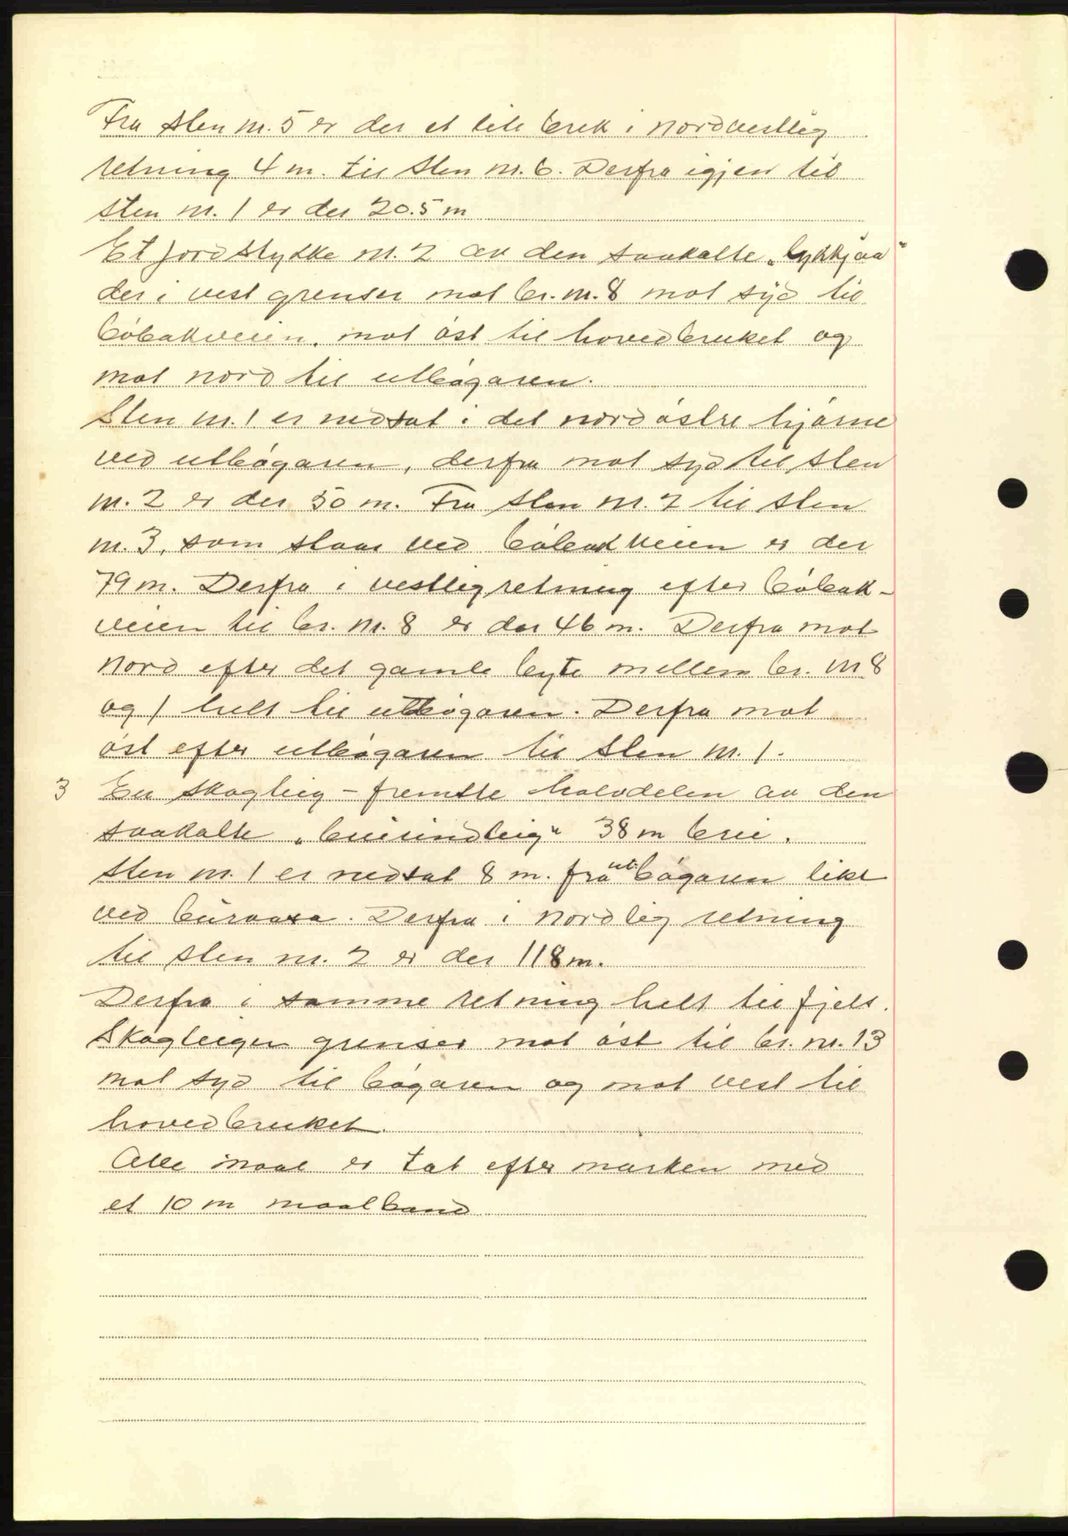 Fra sten nr. 5 er der et lite bræk i nordvestlig
retning 4 m. til sten nr. 6. Derfra igjen til
sten nr. 1 er der 20.5 m
Et jordstykke nr. 2 av den saakalte „Lykkjaa"
der i vest grenser mot br. nr. 8 mot syd til
bøbakveien, mot øst til hovedbruket og
mot nord til utbøgaren.
Sten nr. 1 er nedsat i det nordøstre hjørne
ved utbøgaren, derfra mot syd til sten
nr. 2 er der 50 m. Fra sten nr. 2 til sten
nr. 3, som staar ved bøbakveien er der
79 m. Derfra i vestlig retning efter bøbak-
veien til br. nr. 8 er der 46 m. Derfra mot
nord efter det gamle byte mellem br. nr. 8
og 1 helt til utbøgaren. Derfra mot
øst efter utbøgaren til sten nr. 1.
3 En skogteig – fremste halvdelen av den
saakalte 38 m brei.
Sten nr. 1 er nedsat 8 m. fra utbøgaren like
ved Derfra i nordlig retning
til sten nr. 2 er der 118 m.
Derfra i samme retning helt til fjels.
Skogteigen grenser mot øst til br. nr. 13
mot syd til bøgaren og mot vest til
hovedbruket.
Alle maal er tat efter marken med
et 10 m maalband